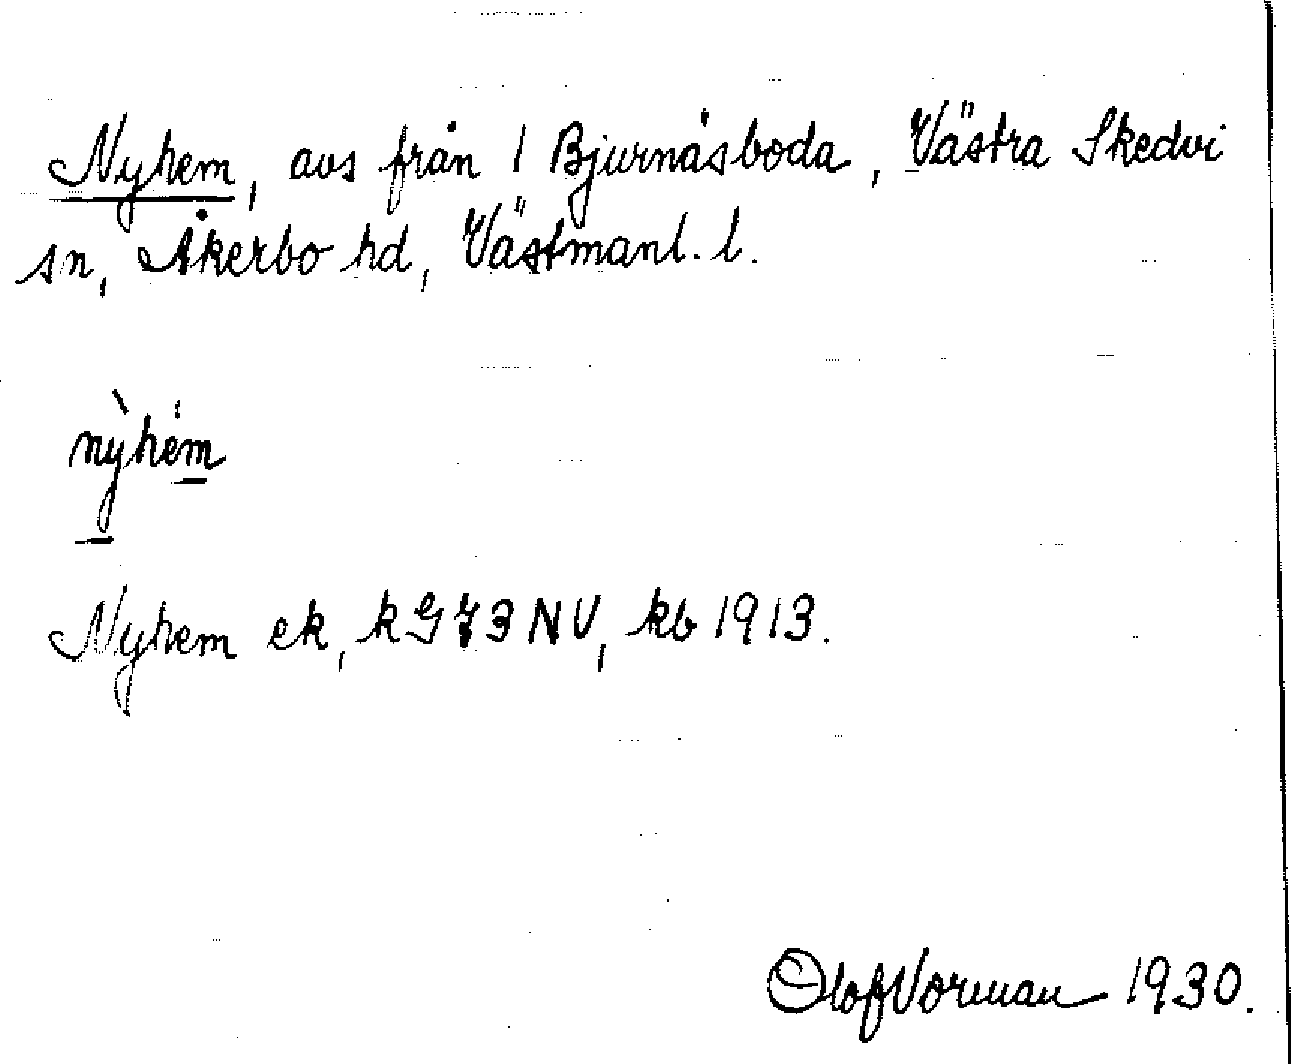 Nyhem, avs från 1 Bjurnåsboda, Västra Skedvi
sn, Åkerbo hd, Västmanl. l.
nỳhem
Nyhem ek, k G 73 NV, kb 1913.
Olof Vorman 1930.